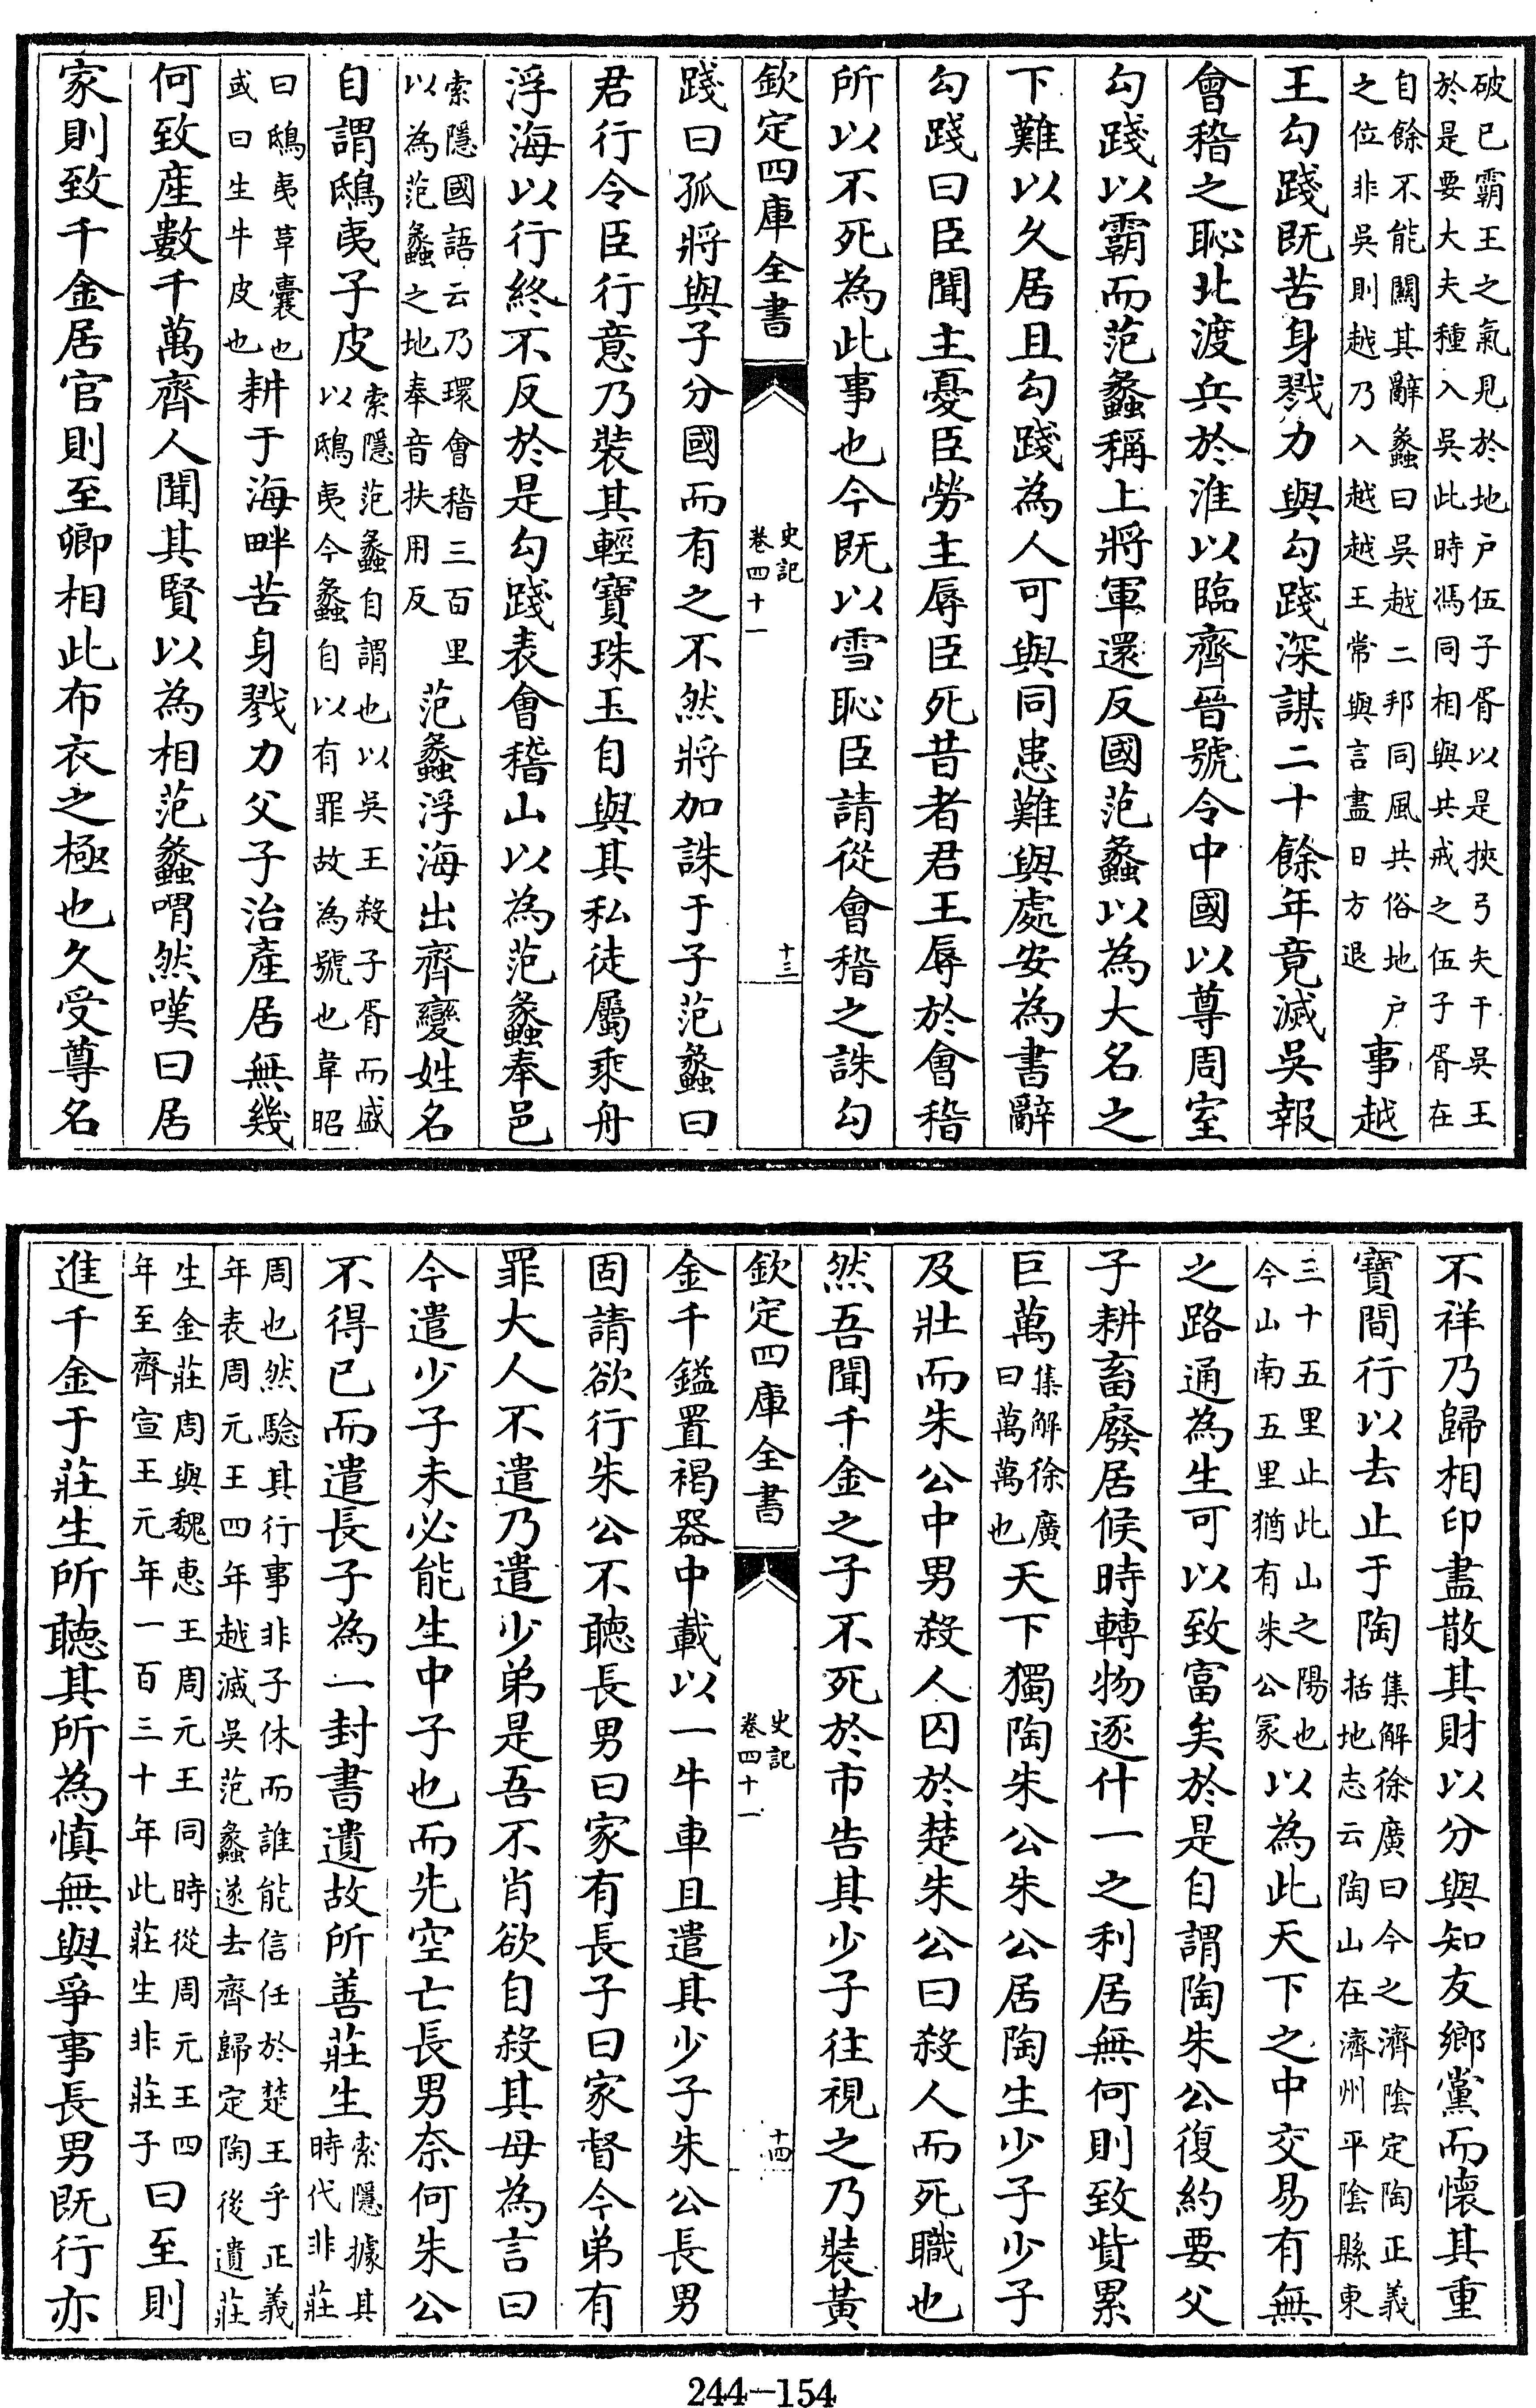 破已霸王之氣見於地户伍子胥以是挾弓矢干吳王
於是要大夫種入吳此時馮同相與共戒之伍子胥在
自餘不能關其辭蠡曰吳越二邦同風共俗地户
之位非吳則越乃入越越王常與言盡日方退
事越
王勾踐既苦身戮力與勾踐深謀二十餘年竟滅吳報
會稽之恥北渡兵於淮以臨齊晉號令中國以尊周室
勾踐以霸而范蠡稱上將軍還反國范蠡以為大名之
下難以久居且勾踐為人可與同患難與處安為書辭
勾踐曰臣聞主憂臣勞主辱臣死昔者君王辱於會稽
所以不死為此事也今既以雪恥臣請從會稽之誅勾
欽定四庫全書
史記
卷四十一
十三
踐曰孤將與子分國而有之不然將加誅于子范蠡曰
君行令臣行意乃裝其輕寶珠玉自與其私徒屬乘舟
浮海以行終不反於是勾踐表會稽山以為范蠡奉邑
索隱國語云乃環會稽三百里
以為范蠡之地奉音扶用反
范蠡浮海出齊變姓名
自謂鴟夷子皮
索隱范蠡自謂也以吳王殺子胥而盛
以鴟夷今蠡自以有罪故為號也韋昭
曰鴟夷革囊也
或曰生牛皮也
耕于海畔苦身戮力父子治產居無幾
何致產數千萬齊人聞其賢以為相范蠡喟然嘆曰居
家則致千金居官則至卿相此布衣之極也久受尊名
不祥乃歸相印盡散其財以分與知友鄉黨而懷其重
寶間行以去止于陶
集解徐廣曰今之濟陰定陶正義
括地志云陶山在濟州平陰縣東
三十五里止此山之陽也
今山南五里猶有朱公冢
以為此天下之中交易有無
之路通為生可以致富矣於是自謂陶朱公復約要父
子耕畜廢居候時轉物逐什一之利居無何則致貲累
巨萬
集解徐廣
曰萬萬也
天下獨陶朱公朱公居陶生少子少子
及壯而朱公中男殺人囚於楚朱公曰殺人而死職也
然吾聞千金之子不死於市告其少子往視之乃裝黃
欽定四庫全書
史記
卷四十一
十四
金千鎰置褐器中載以一牛車且遣其少子朱公長男
固請欲行朱公不聽長男曰家有長子曰家督今弟有
罪大人不遣乃遣少弟是吾不肖欲自殺其母為言曰
今遣少子未必能生中子也而先空亡長男奈何朱公
不得已而遣長子為一封書遺故所善莊生
索隱據其
時代非莊
周也然驗其行事非子休而誰能信任於楚王乎正義
年表周元王四年越滅吳范蠡遂去齊歸定陶後遺莊
生金莊周與魏惠王周元王同時從周元王四
年至齊宣王元年一百三十年此莊生非莊子
曰至則
進千金于莊生所聽其所為慎無與爭事長男既行亦
244-154